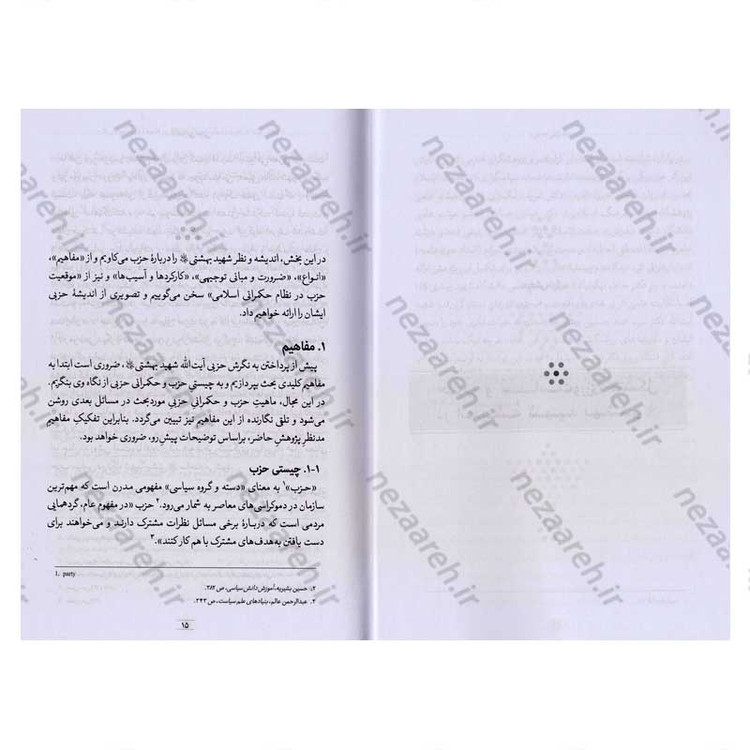 در این بخش، اندیشه و نظر شهید بهشتی را دربارهٔ حزب می‌کاویم و از «مفاهیم»،
«انواع»، «ضرورت و مبانی توجیهی»، «کارکردها و آسیب‌ها» و نیز از «موقعیت
حزب در نظام حکمرانی اسلامی» سخن می‌گوییم و تصویری از اندیشهٔ حزبی
ایشان را ارائه خواهیم داد.
۱. مفاهیم
پیش از پرداختن به نگرش حزبی آیت‌الله شهید بهشتی، ضروری است ابتدا به
مفاهیم کلیدی بحث بپردازیم و به چیستی حزب و حکمرانی حزبی از نگاه وی بنگریم.
در این مجال، ماهیت حزب و حکمرانی حزبیِ موردبحث در مسائل بعدی روشن
می‌شود و تلقی نگارنده از این مفاهیم نیز تبیین می‌گردد. بنابراین تفکیک مفاهیم
مدنظرِ پژوهشِ حاضر، براساس توضیحات پیش‌رو، ضروری خواهد بود.
۱-۱. چیستی حزب
«حزب»۱ به معنای «دسته و گروه سیاسی» مفهومی مدرن است که مهم‌ترین
سازمان در دموکراسی‌های معاصر به شمار می‌رود.۲ حزب «در مفهوم عام، گردهمایی
مردمی است که دربارهٔ برخی مسائل نظرات مشترک دارند و می‌خواهند برای
دست یافتن به هدف‌های مشترک با هم کار کنند».۳
1. party
۲. حسین بشیریه، آموزش دانش سیاسی، ص ۳۸۲.
۳. عبدالرحمن عالم، بنیادهای علم سیاست، ص ۳۴۳.
۱۵
nezaareh.ir
nezaareh.ir
nezaareh.ir
nezaareh.ir
nezaareh.ir
nezaareh.ir
nezaareh.ir